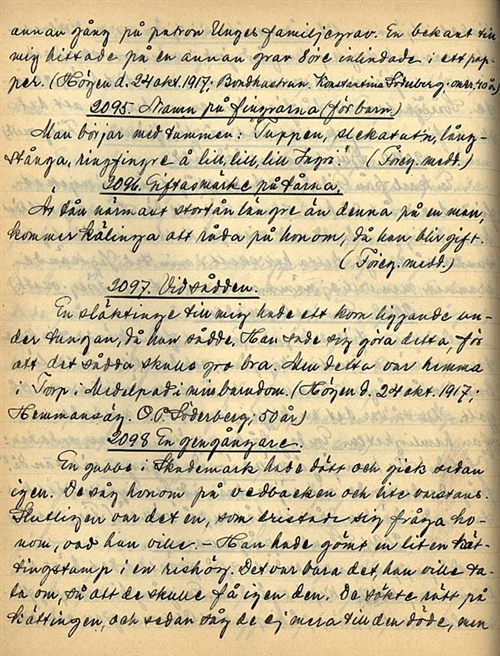 annan gång på patron Unges familjegrav. En bekant till
mig hittade på en annan grav 5öre inlindade i ett pap-
per. (Högen d. 24 okt. 1917, Bondhustrun, Konstantina Söderberg, omkr. 40 år)
2095. Namn på fingrarna (för barn.)
Man börjar med tummen: Tuppen, slekatut'n, lång-
stånga, ringfingre å lill, lill, lill (Föreg. medd.)
2096. Giftasmärke på tårna.
Är tån närmast stortån längre än denna på en man,
kommer kälinga att råda på honom, då han blir gift.
(Föreg. medd.)
2097. Vid sådden.
En släktinge till mig hade ett korn liggande un-
der tungan, då han sådde. Han sade sig göra detta, för
att det sådda skulle gro bra. Men detta var hemma
i Torp i Medelpad i min barndom. (Högen d. 24 okt. 1917,
Hemmansäg. O.P. Söderberg, 50 år)
2098 En gengångare.
En gubbe i Skademark hade dött och gick sedan
igen. De såg honom på vedbacken och lite varstans.
Slutligen var det en, som tristade sig fråga ho-
nom, vad han ville. – Han hade gömt en liten kät-
tingstump i en rishög. Det var bara det, han ville ta-
la om, så att de skulle få igen den. De sökte rätt på
kättingen, och sedan såg de ej mera till den döde, men